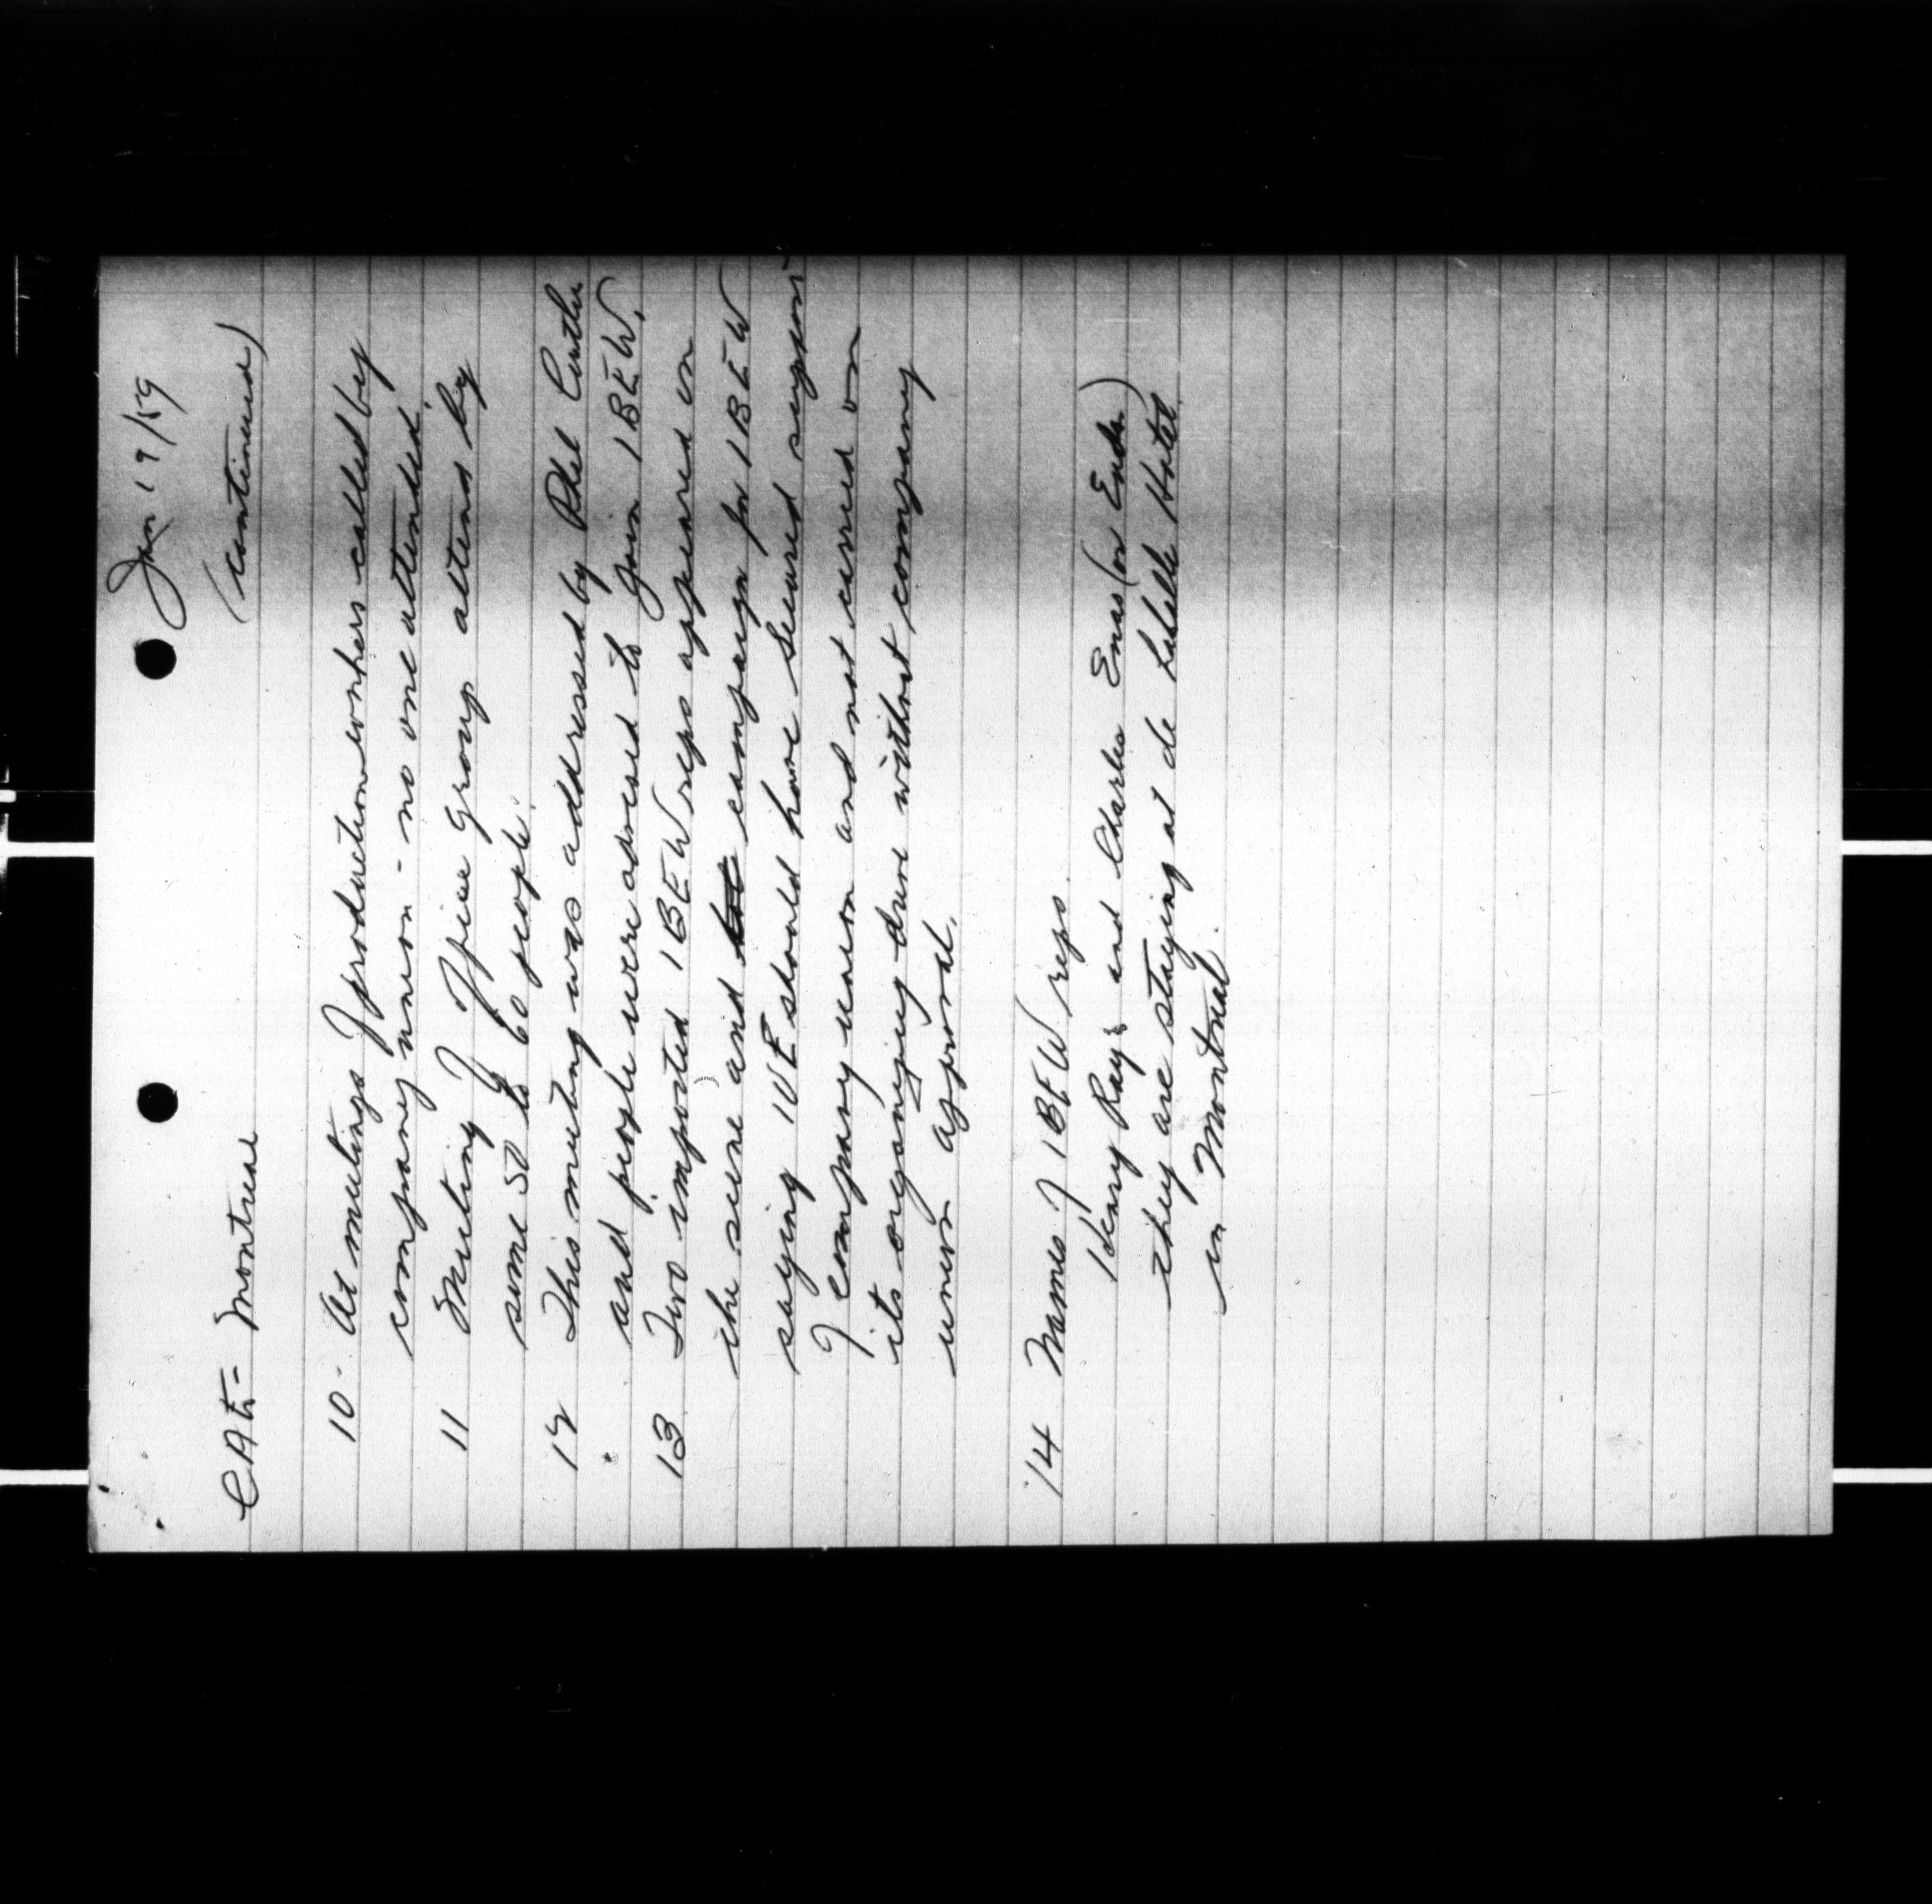 Jan 19/59
CAE - Montreal (continued)
10 - At meetings of production workers called by
company union - no one attended.
11 Meeting of office group attend by
some 50 to 60 people.
12 This meeting was addressed by Phil Cutler
and people were advised to join IBEW.
13 Two imported IBEW reps appeared on
the scene and campaign for IBEW
saying IUE should have secured support
of company union and not carried on
its organizing drive without company
union approval.
14 Names of IBEW reps.
Henry Ray and Charles Enas (or Enda)
they are staying at de LaSalle Hotel
in Montreal.